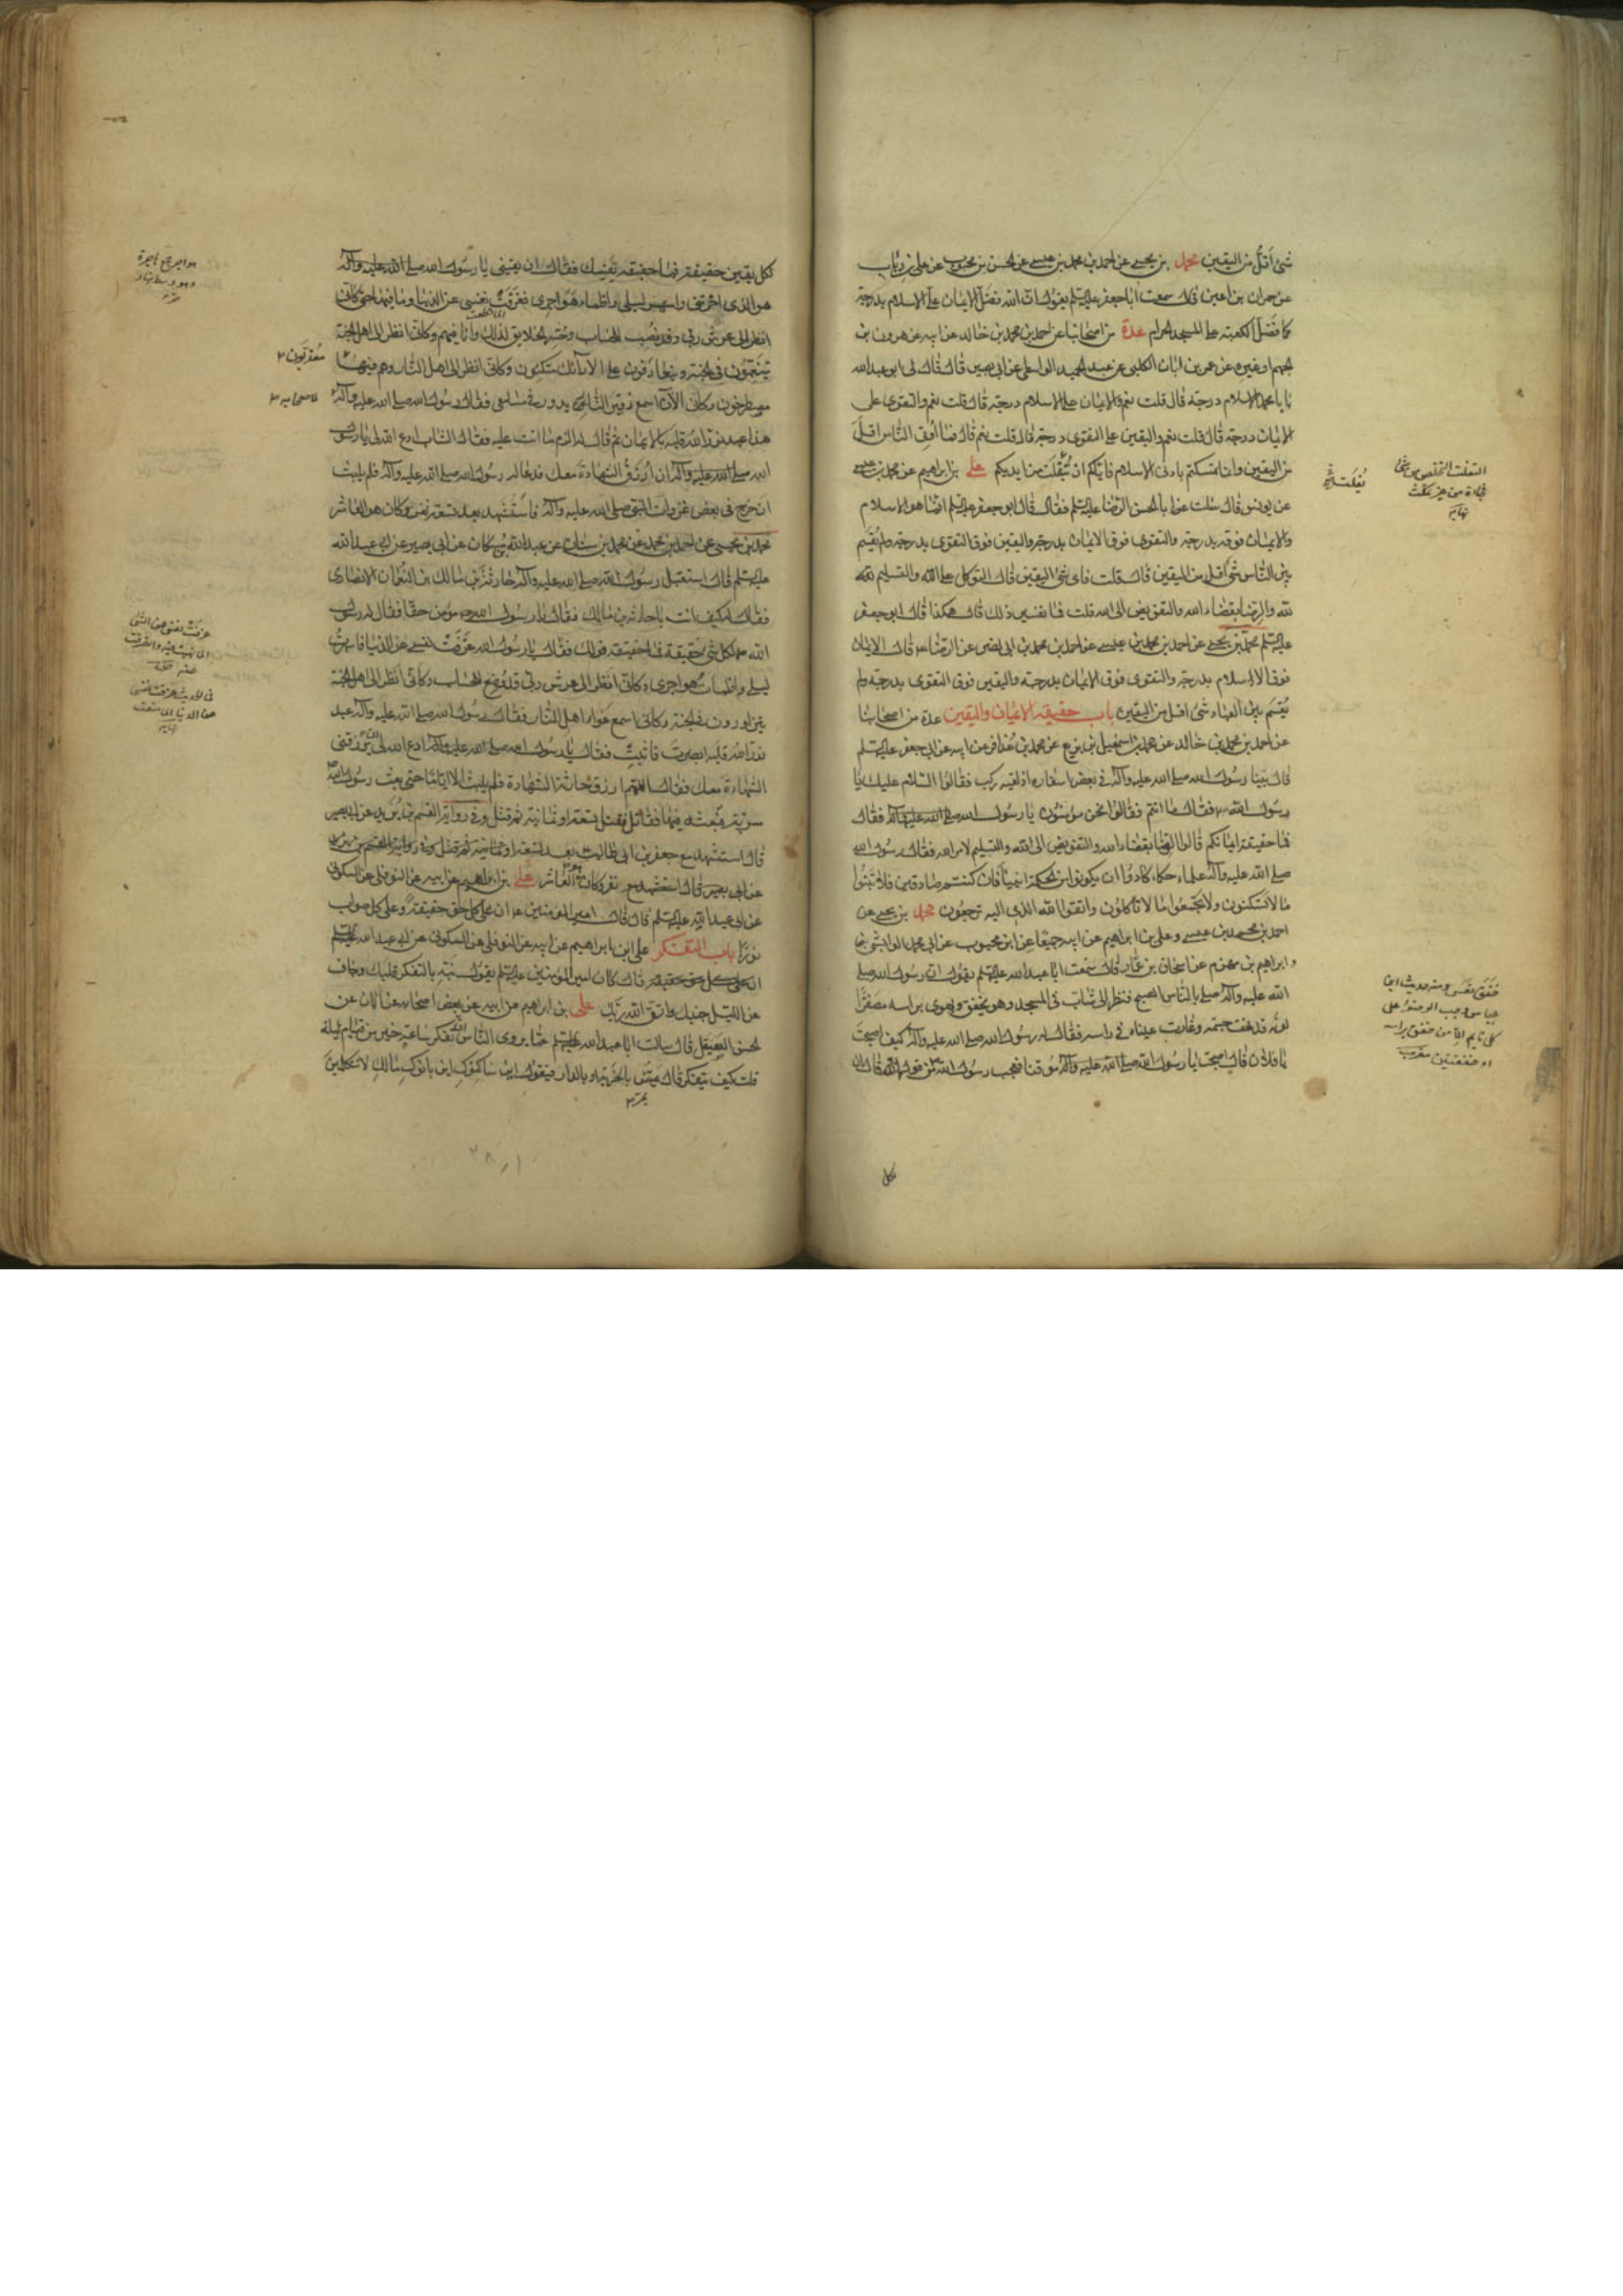 شئ أقلّ من اليقين محمد بن يحيى عن احمد بن محمد بن عيسى عن الحسن بن محبوب عن على بن رئاب
عن حمران بن اعين قال سمعت ابا جعفر عليه السلم يقول ان الله فضّل الايمان على الاسلام بدرجة
كما فضّل الكعبة على المسجد الحرام عدة من اصحابنا عن احمد بن محمد بن خالد عن ابيه عن هرون بن
الجهم او غيره عن عمر بن ابان الكلبى عن عبد الحميد الواسطى عن ابى بصير قال قال لى ابو عبد الله
يا با محمد الاسلام درجة قال قلت نعم والايمان على الاسلام درجة قال قلت نعم والتقوى على
الايمان درجة قال قلت نعم واليقين على التقوى درجة قال قلت نعم قال فما اوتى الناس اقلّ
من اليقين وانما تمسكتم بادنى الاسلام فاياكم ان يتفلّت من ايديكم على بن ابراهيم عن محمد بن عيسى
عن يونس قال سئلت عن ابا الحسن الرضا عليه السلم فقال قال ابو جعفر عليه السلم انما هو الاسلام
والايمان فوقه بدرجة والتقوى فوق الايمان بدرجة واليقين فوق التقوى بدرجة ولم يُقسَم
بين الناس شئ اقل من اليقين قال قلت فاى شئ اليقين قال التوكل على الله والتسليم لله
لله والرضا بقضاء الله والتفويض الى الله قلت فما تفسير ذلك قال هكذا قال ابو جعفر
عليه السلم محمد بن يحيى عن احمد بن محمد بن عيسى عن احمد بن محمد بن ابى نصر عن الرضا ع قال الايمان
فوق الاسلام بدرجة والتقوى فوق الايمان بدرجة واليقين فوق التقوى بدرجة ولم
يُقسَم بين العباد شئ اقل من اليقين باب حقيقة الايمان واليقين عدة من اصحابنا
عن احمد بن محمد بن خالد عن محمد بن اسمعيل بن بزيع عن محمد بن عُذافر عن ابيه عن ابى جعفر عليه السلم
قال بينا رسول الله صلى الله عليه وآله فى بعض اسفاره اذ لقيه ركب فقالوا السلام عليك يا
رسول الله ص فقال ما انتم فقالوا نحن مؤمنون يا رسول الله صلى الله عليه وآله فقال
فما حقيقة ايمانكم قالوا الرضا بقضاء الله والتفويض الى الله والتسليم لامر الله فقال رسول الله
صلى الله عليه وآله علماء حكماء كادوا ان يكونوا من الحكمة انبياء فان كنتم صادقين فلا تبنوا
ما لا تسكنون ولا تجمعوا ما لا تاكلون واتقوا الله الذى اليه ترجعون محمد بن يحيى عن
احمد بن محمد بن عيسى وعلى بن ابراهيم عن ابيه جميعًا عن ابن محبوب عن ابى محمد الوابشى
و ابراهيم بن مهزم عن اسحاق بن عمّار قال سمعت ابا عبد الله عليه السلم يقول ان رسول الله صلى
الله عليه وآله صلى بالناس الصبح فنظر الى شابّ فى المسجد وهو يخفق ويهوى براسه مصفرًّا
لونه قد نحف جسمه وغارت عيناه فى راسه فقال له رسول الله صلى الله عليه وآله كيف اصبحت
يا فلان قال اصبحت يا رسول الله صلى الله عليه وآله موقنا فعجب رسول الله ص من قوله وقال ان
التفلت التخلص من شئ
فجاءة من غير تمكث
نهاية
خفق نعس ومنه حديث ابن
عباس وجب الوضوء على
كل نايم الا من خفق براسه
او خفقتين مغرب
لكل
لكل يقين حقيقة فما حقيقة يقينك فقال ان يقينى يا رسول الله صلى الله عليه وآله
هو الذى احزننى واسهر ليلى واظماء هواجرى فعزفت نفسى عن الدنيا وما فيها حتى كانّى
انظر الى عرش ربى وقد نُصب للحساب وحُشر الخلايق لذلك وانا فيهم وكانّى انظر الى اهل الجنة
يتنعّمون فى الجنة ويتعارفون على الارائك متكئون وكانّى انظر الى اهل النار وهم فيها
مصطرخون وكانّى الآن اسمع زفير النار يدور فى مسامعى فقال رسول الله صلى الله عليه وآله
هذا عبد نوّر الله قلبه بالايمان ثم قال له الزم ما انت عليه فقال الشاب ادع الله لى يا رسول
الله صلى الله عليه وآله ان اُرزق الشهادة معك فدعا له رسول الله صلى الله عليه وآله فلم يلبث
ان خرج فى بعض غزوات النبى صلى الله عليه وآله فاستشهد بعد تسعة نفر وكان هو العاشر
محمد بن يحيى عن احمد بن محمد عن محمد بن سنان عن عبد الله بن مسكان عن ابى بصير عن ابى عبد الله
عليه السلم قال استقبل رسول الله صلى الله عليه وآله حارثة بن مالك بن النعمان الانصارى
فقال له كيف انت يا حارثة بن مالك فقال يا رسول الله مؤمن حقا فقال له رسول
الله ص لكل شئ حقيقة فما حقيقة قولك فقال يا رسول الله عزفت نفسى عن الدنيا فاسهرتُ
ليلى واظمات هواجرى وكانّى انظر الى عرش ربى قد وُضع للحساب وكانّى انظر الى اهل الجنة
يتزاورون فى الجنة وكانّى اسمع عُواء اهل النار فقال رسول الله صلى الله عليه وآله عبد
نوّر الله قلبه ابصرت فاثبت فقال يا رسول الله صلى الله عليه وآله ادع الله لى ان يرزقنى
الشهادة معك فقال اللهم ارزق حارثة الشهادة فلم يلبث الا ايّامًا حتى بعث رسول الله ص
سرية فبعثه فيها فقاتل فقتل تسعة او ثمانية ثم قتل وفى رواية القسم بن بُريد عن ابى بصير
قال استشهد مع جعفر بن ابى طالب بعد تسعة
عن ابى بصير قال استشهد مع نفر وكان هو العاشر على بن ابراهيم عن ابيه عن النوفلى عن السكونى
عن ابى عبد الله عليه السلم قال قال امير المؤمنين ع ان على كل حق حقيقة وعلى كل صواب
نورًا باب التفكر على ابن ابراهيم عن ابيه عن النوفلى عن السكونى عن ابى عبد الله عليه السلم
قال كان امير المؤمنين عليه السلم يقول نبّه بالتفكر قلبك وجاف
عن الليل جنبك واتق الله ربّك على بن ابراهيم عن ابيه عن بعض اصحابه عن ابان عن
الحسن الصيقل قال سالت ابا عبد الله عليه السلم عمّا يروى الناس ان تفكر ساعة خير من قيام ليلة
قلت كيف يتفكر قال يمرّ بالخربة او بالدار فيقول اين ساكنوك اين بانوك مالك لا تتكلمين
هواجر جمع هاجرة
وهو وسط النهار
عزفت نفسى عن الشئ
نهاية